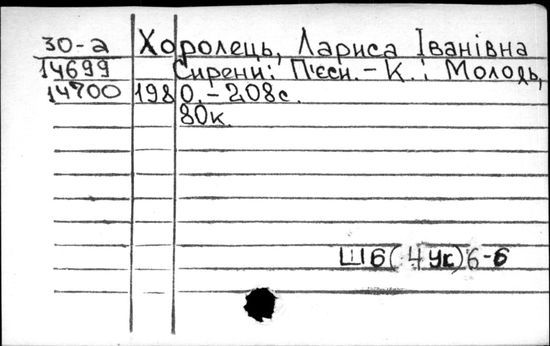 30-а Хоролець, Лариса Іванівна
14699 Сирени: П'єси. - К.: Молодь,
14700 1980. - 208с.
80к.
Ш6(4Ук)6-6